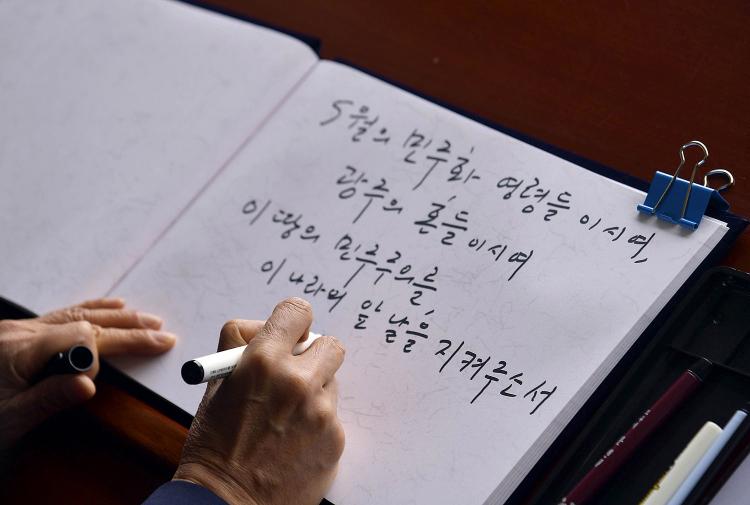 5월의 민주화 영령들이시여,
광주의 혼들이시여
이 땅의 민주주의를
이 나라의 앞날을 지켜주소서